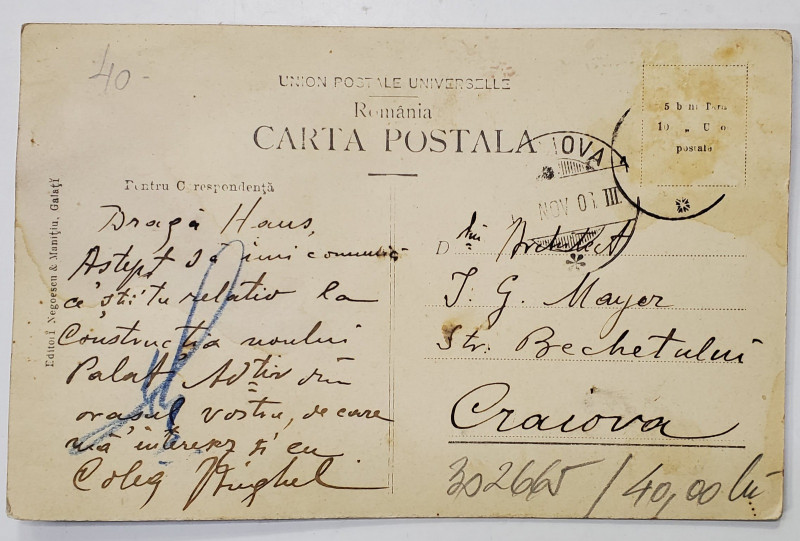 40-
UNION POSTALE UNIVERSELLE
România
CARTA POSTALA
5 b ni
10 „
postale
IOVA
NOV 0 III
Pentru Corespondență
Editorĭ Negoescu & Manițiu, Galațĭ
Dragă Hans,
Aștept să 'imi comunică
ce știi tu relativ la
Construcția noului
Palat Adtiv din
orașul vostru, de care
mă interesz și eu
Coleg
D Arhitect
J. G. Mayer
Str. Bechetului
Craiova
302665/40,00 lei